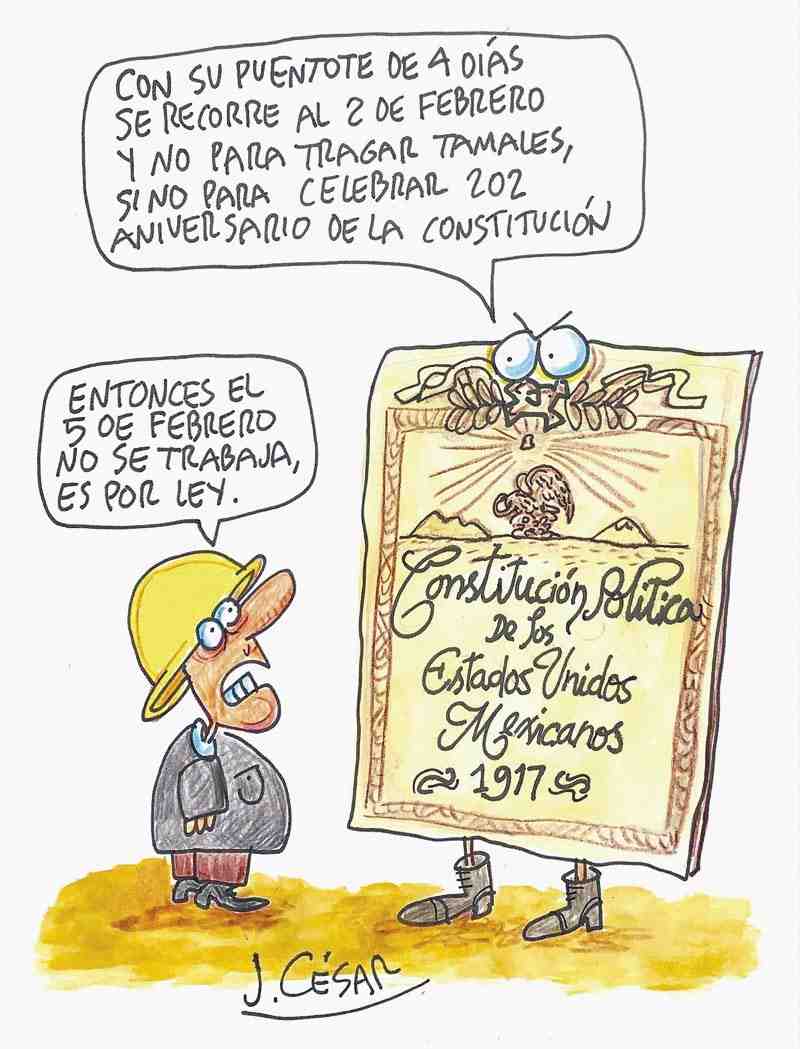 CON SU PUENTOTE DE 4 DÍAS
SE RECORRE AL 2 DE FEBRERO
Y NO PARA TRAGAR TAMALES,
SINO PARA CELEBRAR 202
ANIVERSARIO DE LA CONSTITUCIÓN
ENTONCES EL
5 DE FEBRERO
NO SE TRABAJA,
ES POR LEY.
Constitución Política
De los
Estados Unidos
Mexicanos
1917
J. CÉSAR